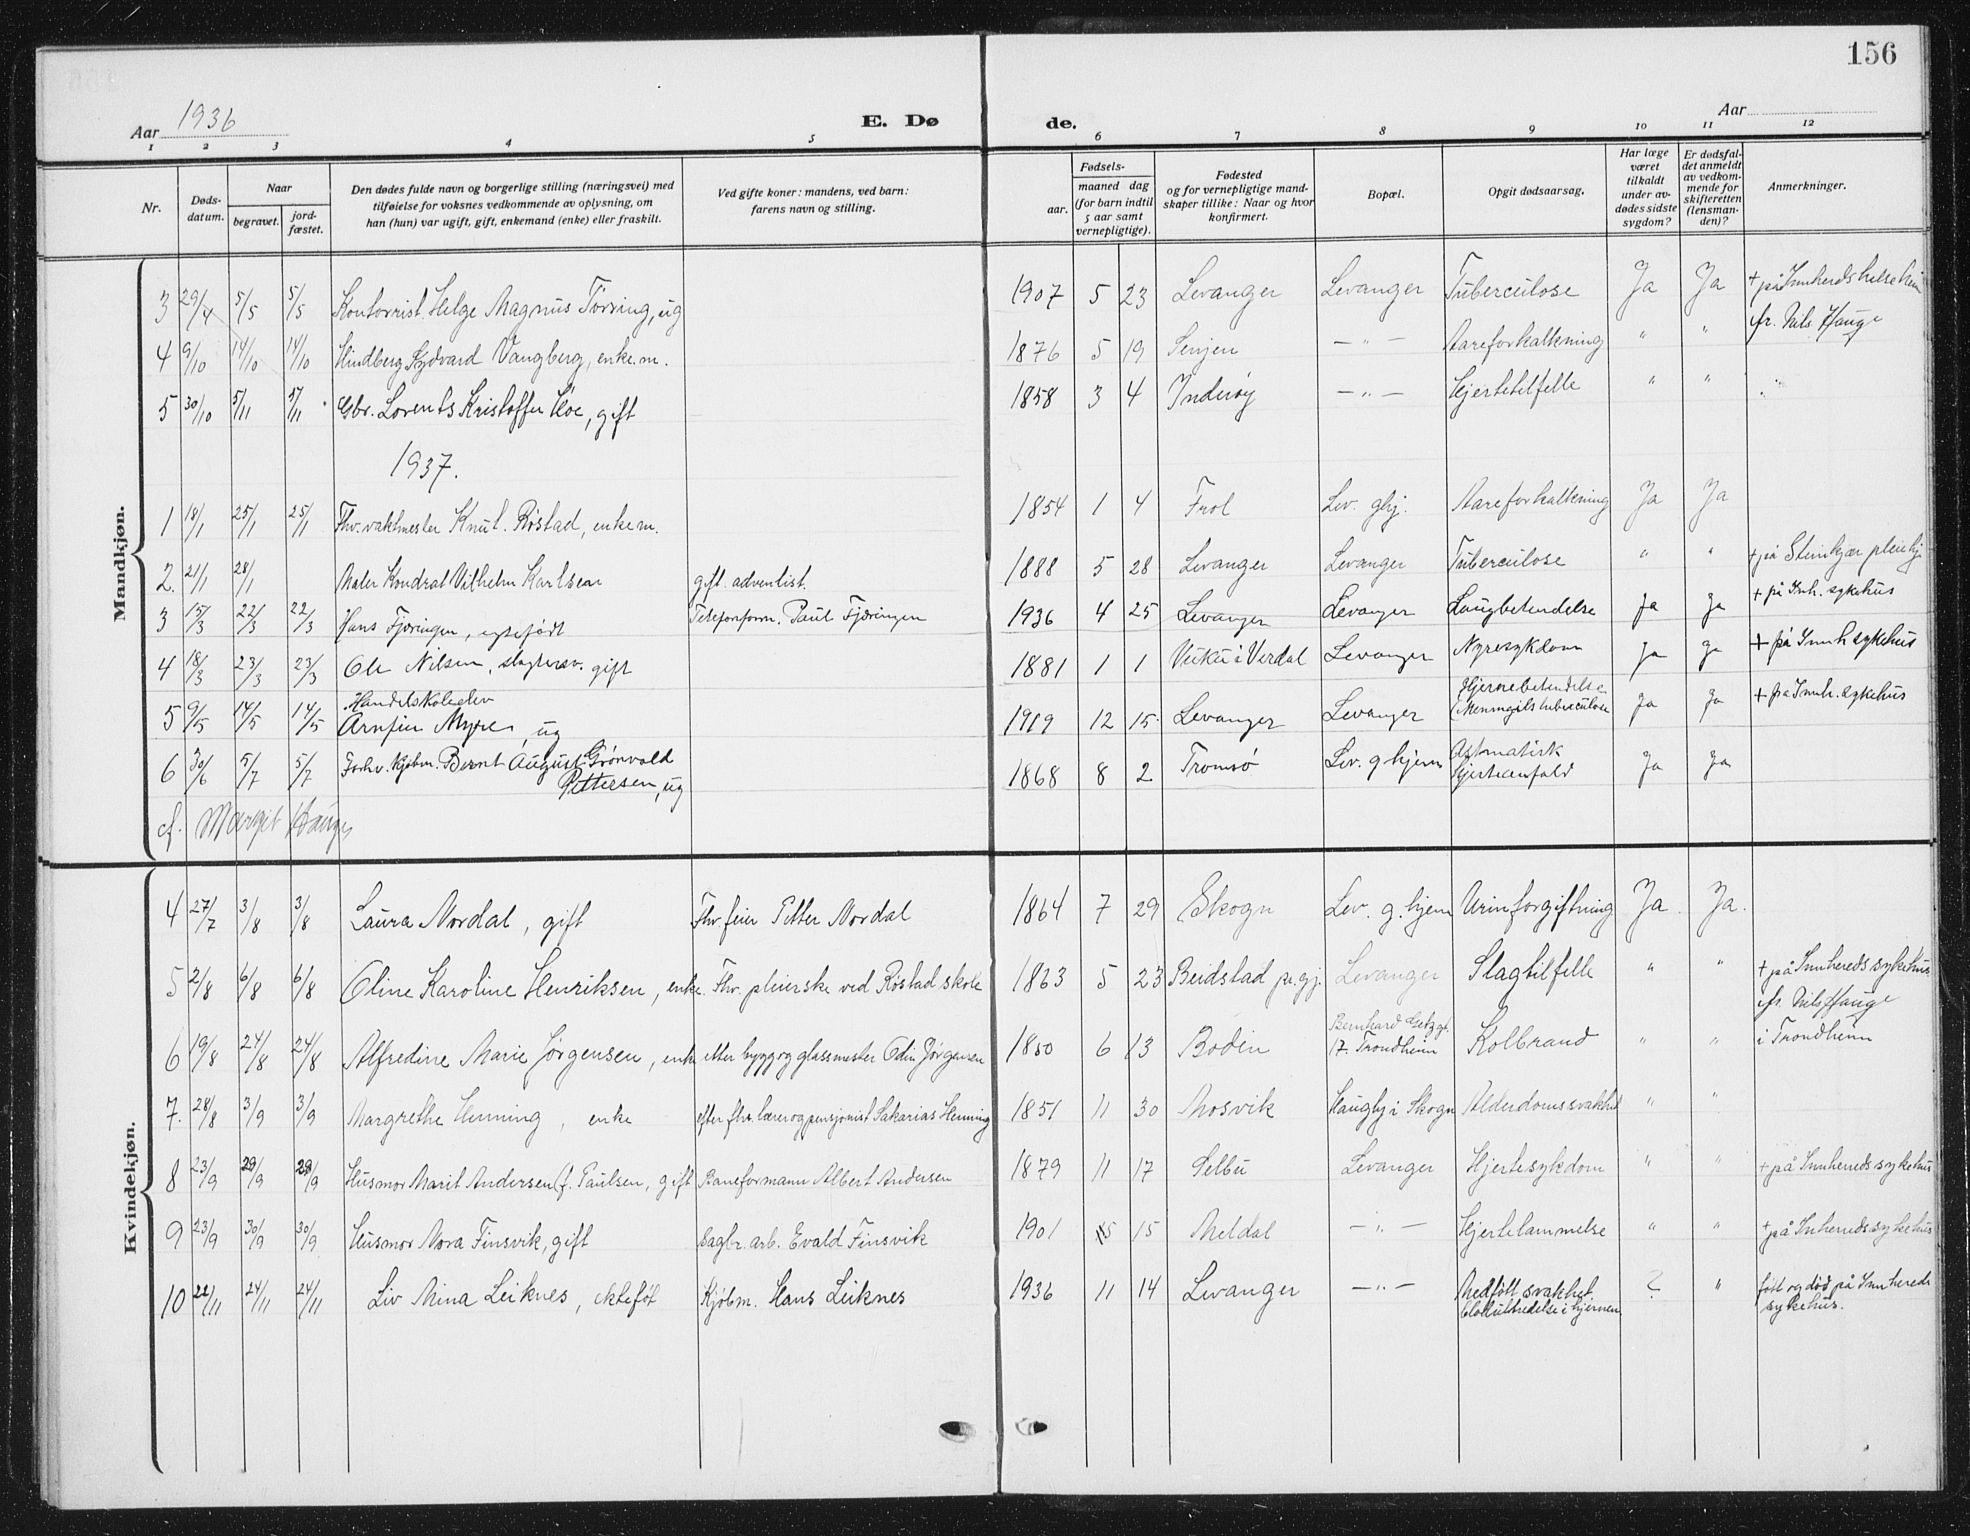 156
Aar 1936
E. Dø de.
Aar
1 2 3 4 5 6 7 8 9 10 11 12
Nr.
Døds-
datum.
Naar
begravet.
jord-
fæstet.
Den dødes fulde navn og borgerlige stilling (næringsvei) med
tilføielse for voksnes vedkommende av oplysning, om
han (hun) var ugift, gift, enkemand (enke) eller fraskilt.
Ved gifte koner: mandens, ved barn:
farens navn og stilling.
Fødsels-
aar.
maaned dag
(for barn indtil
5 aar samt
vernepligtige).
Fødested
og for vernepligtige mand-
skaper tillike: Naar og hvor
konfirmert.
Bopæl.
Opgit dødsaarsag.
Har læge
været
tilkaldt
under av-
dødes sidste
sygdom?
Er dødsfal-
det anmeldt
av vedkom-
mende for
skifteretten
(lensman-
den)?
Anmerkninger.
Mandkjøn.
3 29/4 5/5 5/5 Kontorrist Helge Magnus Tørring, ug 1907 5 23 Levanger Levanger Tuberculose Ja Ja + på Innherds helseheim
fr. Nils Hauge
4 9/10 14/10 14/10 Hindberg Sydvard Vangberg, enkem. 1876 5 19 Senjen — " — Aareforkalkning " "
5 30/10 5/11 5/11 Gbr. Lorents Kristoffer Hoe, gift 1858 3 4 Inderøy — " — Hjertetilfelle " " "
1937.
1 18/1 25/1 25/1 Fhv. vaktmester Knut. Røstad, enkem. 1854 1 4 Frol Lev. ghj. Aareforkalkning Ja Ja
2. 21/1 28/1 Maler Kondrat Vilhelm Karlsen gift. adventist. 1888 5 28 Levanger Levanger Tuberculose " " + på Steinkjær pleiehj
3 15/3 22/3 22/3 Hans Fjæringen, egtefødt Telefonform. Paul Fjæringen 1936 4 25 Levanger Levanger Lungbetendelse Ja Ja + på Inh. sykehus
4 18/3 23/3 23/3 Ole Nilsen, slagtersv. gift 1881 1 1 Vuku i Verdal Levanger Nyresykdom Ja Ja + på Innh sykehus
5 9/5 14/5 14/5 Handelskoleelev
Arnfin Myre, ug 1919 12 15 Levanger Levanger Hjernebetendelse
(Meningits tuberculose Ja Ja + på Innh. sykehus
6 30/6 5/7 5/7 Forhv. kjøbm. Bernt August Grønvold
Pettersen, ug 1868 8 2 Tromsø Lev. g hjem Astmatisk
Hjerteanfald Ja Ja
cf. Margit Hauge
Kvindekjøn.
4 27/7 3/8 3/8 Laura Nordal, gift Fhv. feier Petter Nordal 1864 7 29 Skogn Lev. g. hjem Urinforgiftning Ja Ja.
5 2/8 6/8 6/8 Oline Karoline Henriksen, enke. Fhv. pleierske ved Røstad skole 1863 5 23 Beidstad pr. gj. Levanger Slagtilfelle " " + på Innherds sykehus
fr. Nils Hauge
6 19/8 24/8 24/8 Alfredine Marie Jørgensen, enke etter bygg og glassmester Odin Jørgensen 1850 6 13 Bodin Bernhard Getzgt.
17. Trondheim Kolbrand " " i Trondheim
7. 28/8 3/9 3/9 Margrethe Henning, enke efter fhv. lærer og pensjonist Sakarias Henning 1851 11 30 Mosvik Haugby i Skogn Alderdomssvakhet " "
8 23/9 29/9 29/9 Husmor Marit Andersen f. Paulsen, gift Baneformann Albert Andersen 1879 11 17 Selbu Levanger Hjertesykdom " " + på Innherreds sykehus
9 23/9 30/9 30/9 Husmor Nora Finsvik, gift Sagbr. arb. Evald Finsvik 1901 5 15 Meldal — " — Hjertelammelse " " + på Inherreds sykehus
10 22/11 24/11 24/11 Liv Mina Leiknes, ekteføt Kjøbm. Hans Leiknes 1936 11 14 Levanger — " — Medfött svakhet
Blodutredelse i hjernen ? " födt og död på Innherreds
sykehus.